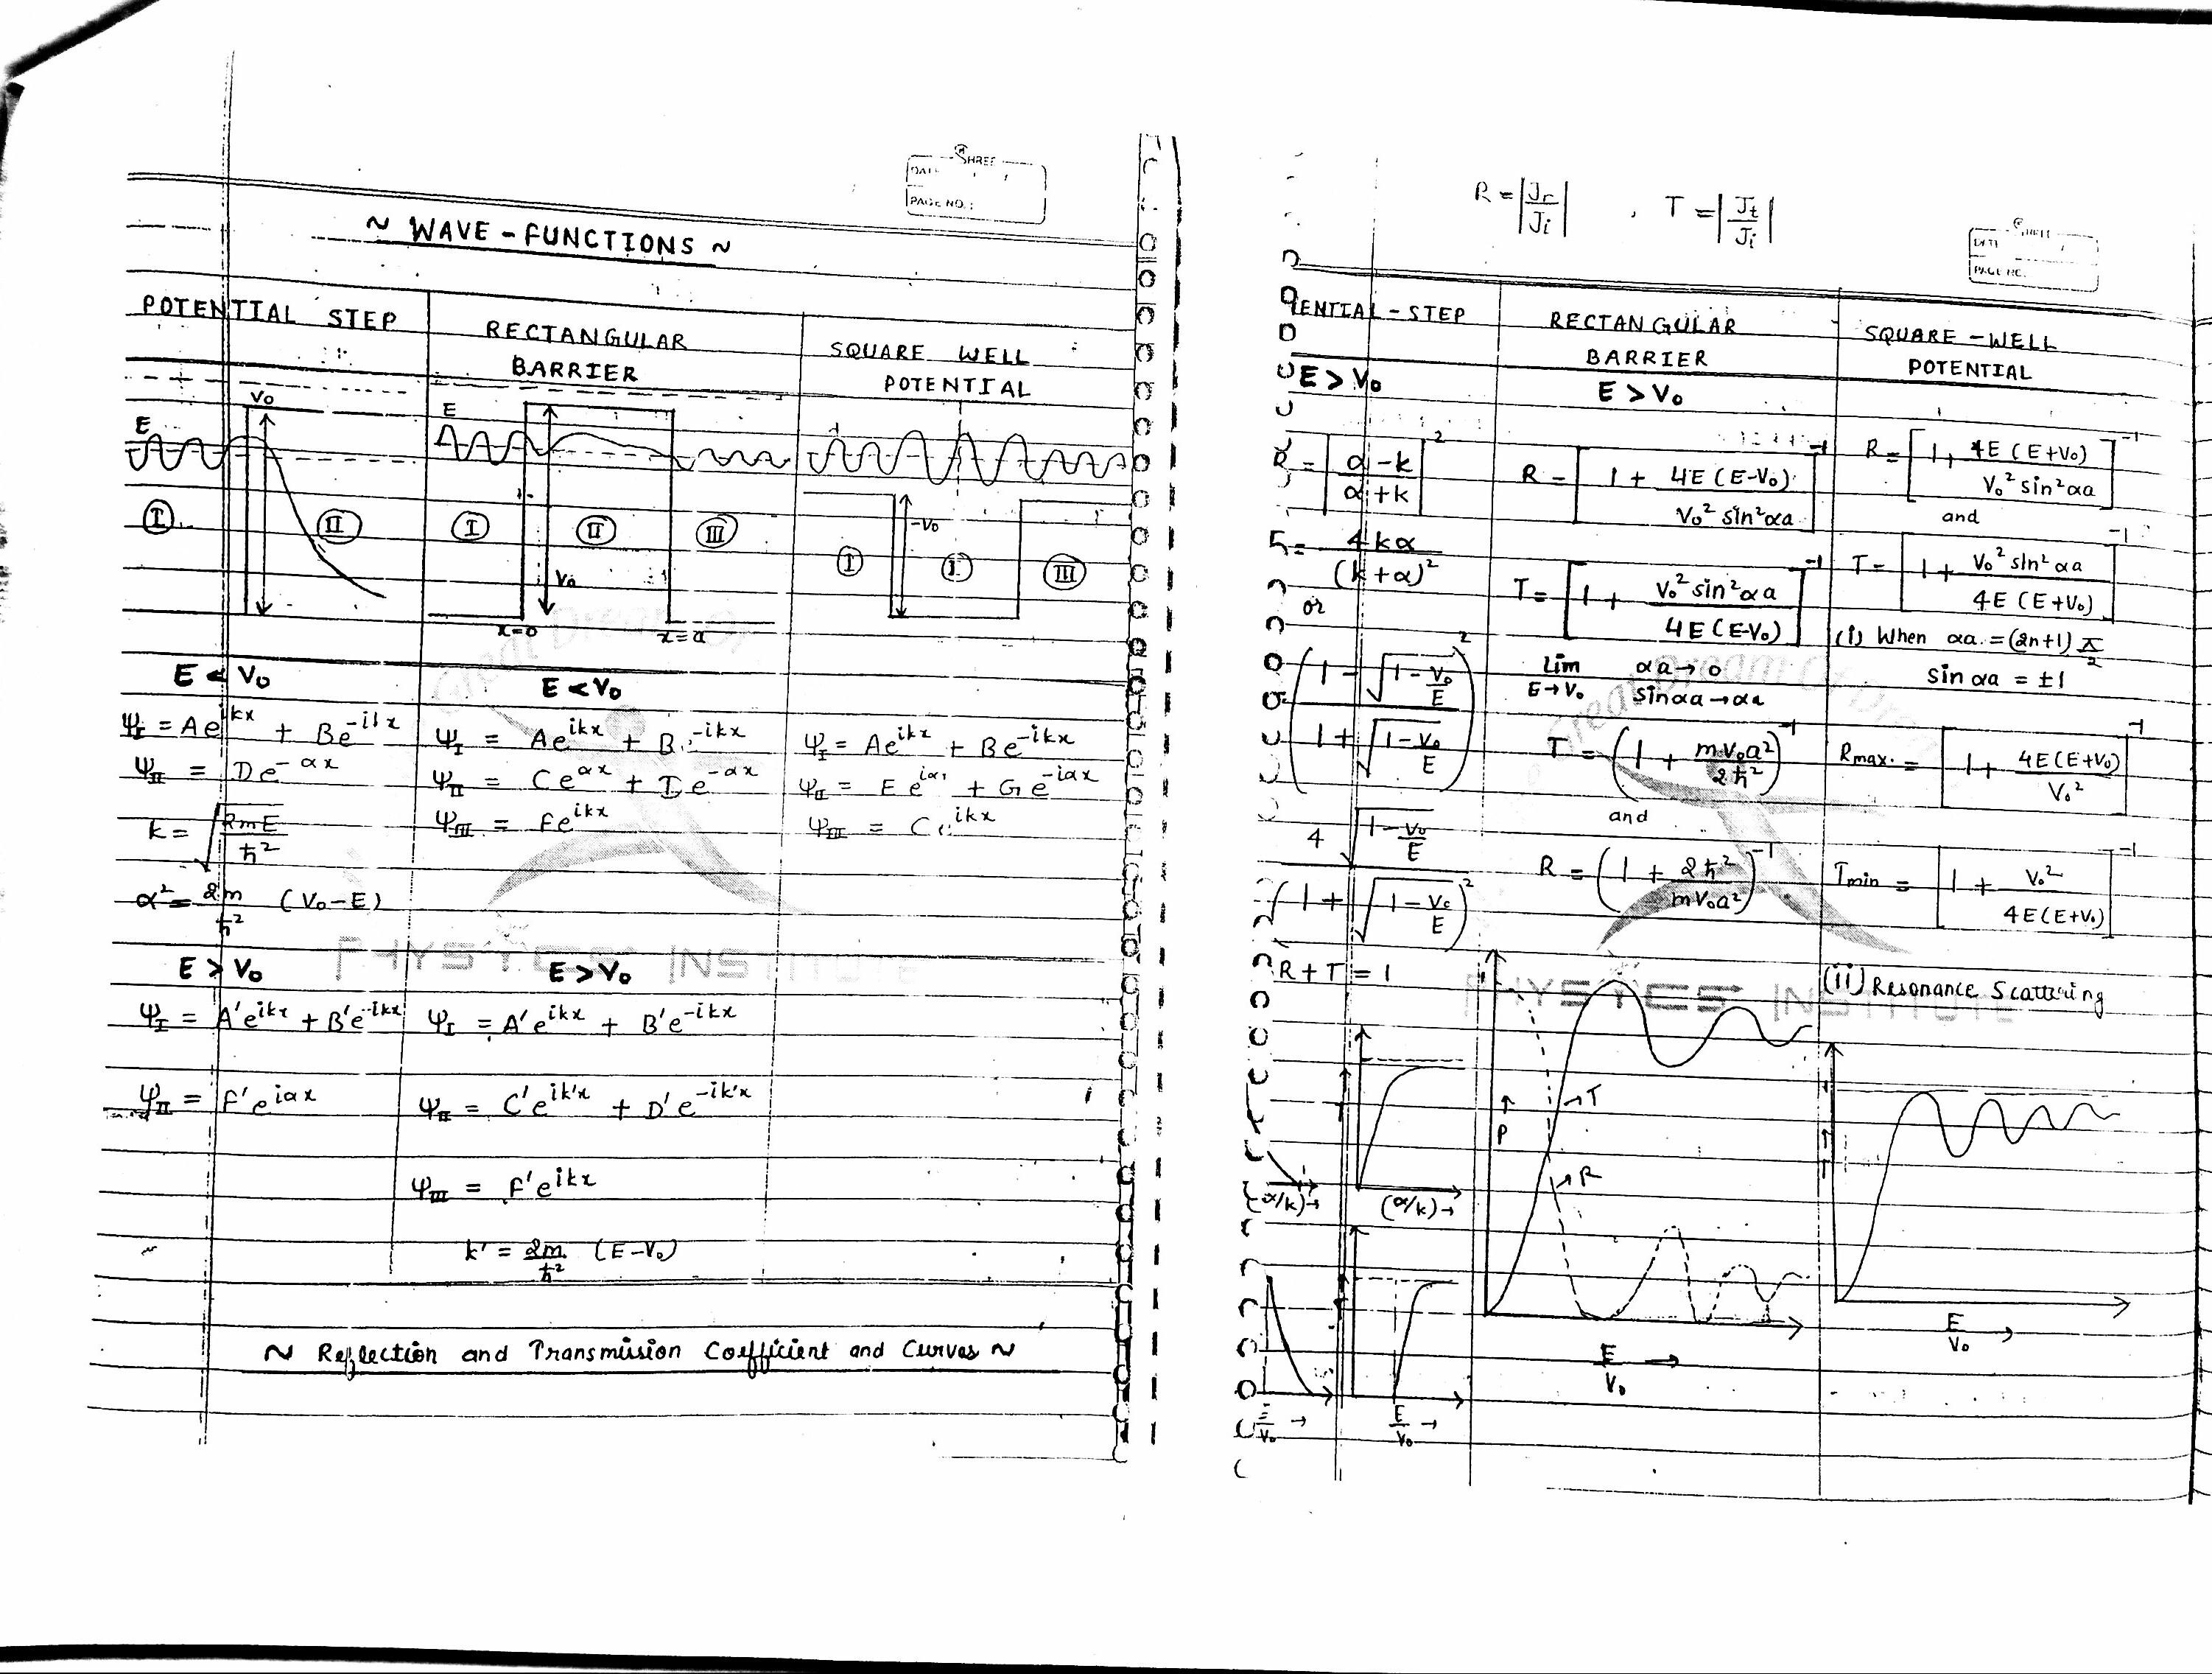 SHREE
DATE
PAGE NO. :
~ WAVE - FUNCTIONS ~
POTENTIAL STEP
RECTANGULAR
BARRIER
SQUARE WELL
POTENTIAL
V₀
E
I
II
E
I
II
III
V₀
x=0
x=a
-V₀
I
I
III
E < V₀
ψ_I = Ae^{ikx} + Be^{-ikx}
ψ_II = De^{-αx}
k = √(2mE/ħ²)
α² = 2m/ħ² (V₀-E)
E < V₀
ψ_I = Ae^{ikx} + B e^{-ikx}
ψ_II = Ce^{αx} + De^{-αx}
ψ_III = Fe^{ikx}
ψ_I = Ae^{ikx} + Be^{-ikx}
ψ_II = Ee^{iαx} + Ge^{-iαx}
ψ_III = C e^{ikx}
E > V₀
ψ_I = A'e^{ikx} + B'e^{-ikx}
ψ_II = F'e^{iαx}
E > V₀
ψ_I = A'e^{ikx} + B'e^{-ikx}
ψ_II = C'e^{ik'x} + D'e^{-ik'x}
ψ_III = F'e^{ikx}
k' = 2m/ħ² (E-V₀)
~ Reflection and Transmission Coefficient and Curves ~
R = |J_r/J_i| , T = |J_t/J_i|
SHREE
DATE
PAGE NO.
ENTIAL - STEP
RECTANGULAR
BARRIER
SQUARE - WELL
POTENTIAL
E > V₀
R = |(α-k)/(α+k)|²
= 4kα/(k+α)²
or
((1 - √(1-V₀/E))/(1 + √(1-V₀/E)))²
4√(1-V₀/E)/(1 + √(1-V₀/E))²
R + T = 1
(α/k)→
(α/k)→
E/V₀ →
E/V₀ →
E > V₀
R = [1 + 4E(E-V₀)/(V₀² sin²αa)]⁻¹
T = [1 + V₀² sin²αa/(4E(E-V₀))]⁻¹
Lim E→V₀ αa→0
sinαa→αa
T = (1 + mV₀a²/2ħ²)⁻¹
and
R = (1 + 2ħ²/mV₀a²)⁻¹
1
P
T
R
E/V₀ →
R = [1 + 4E(E+V₀)/(V₀² sin²αa)]⁻¹
and
T = [1 + V₀² sin²αa/(4E(E+V₀))]⁻¹
(i) When αa = (2n+1) π/2
sin αa = ±1
Rmax. = [1 + 4E(E+V₀)/V₀²]⁻¹
Tmin = [1 + V₀²/(4E(E+V₀))]⁻¹
(ii) Resonance Scattering
E/V₀ →
PHYSICS INSTITUTE
PHYSICS INSTITUTE